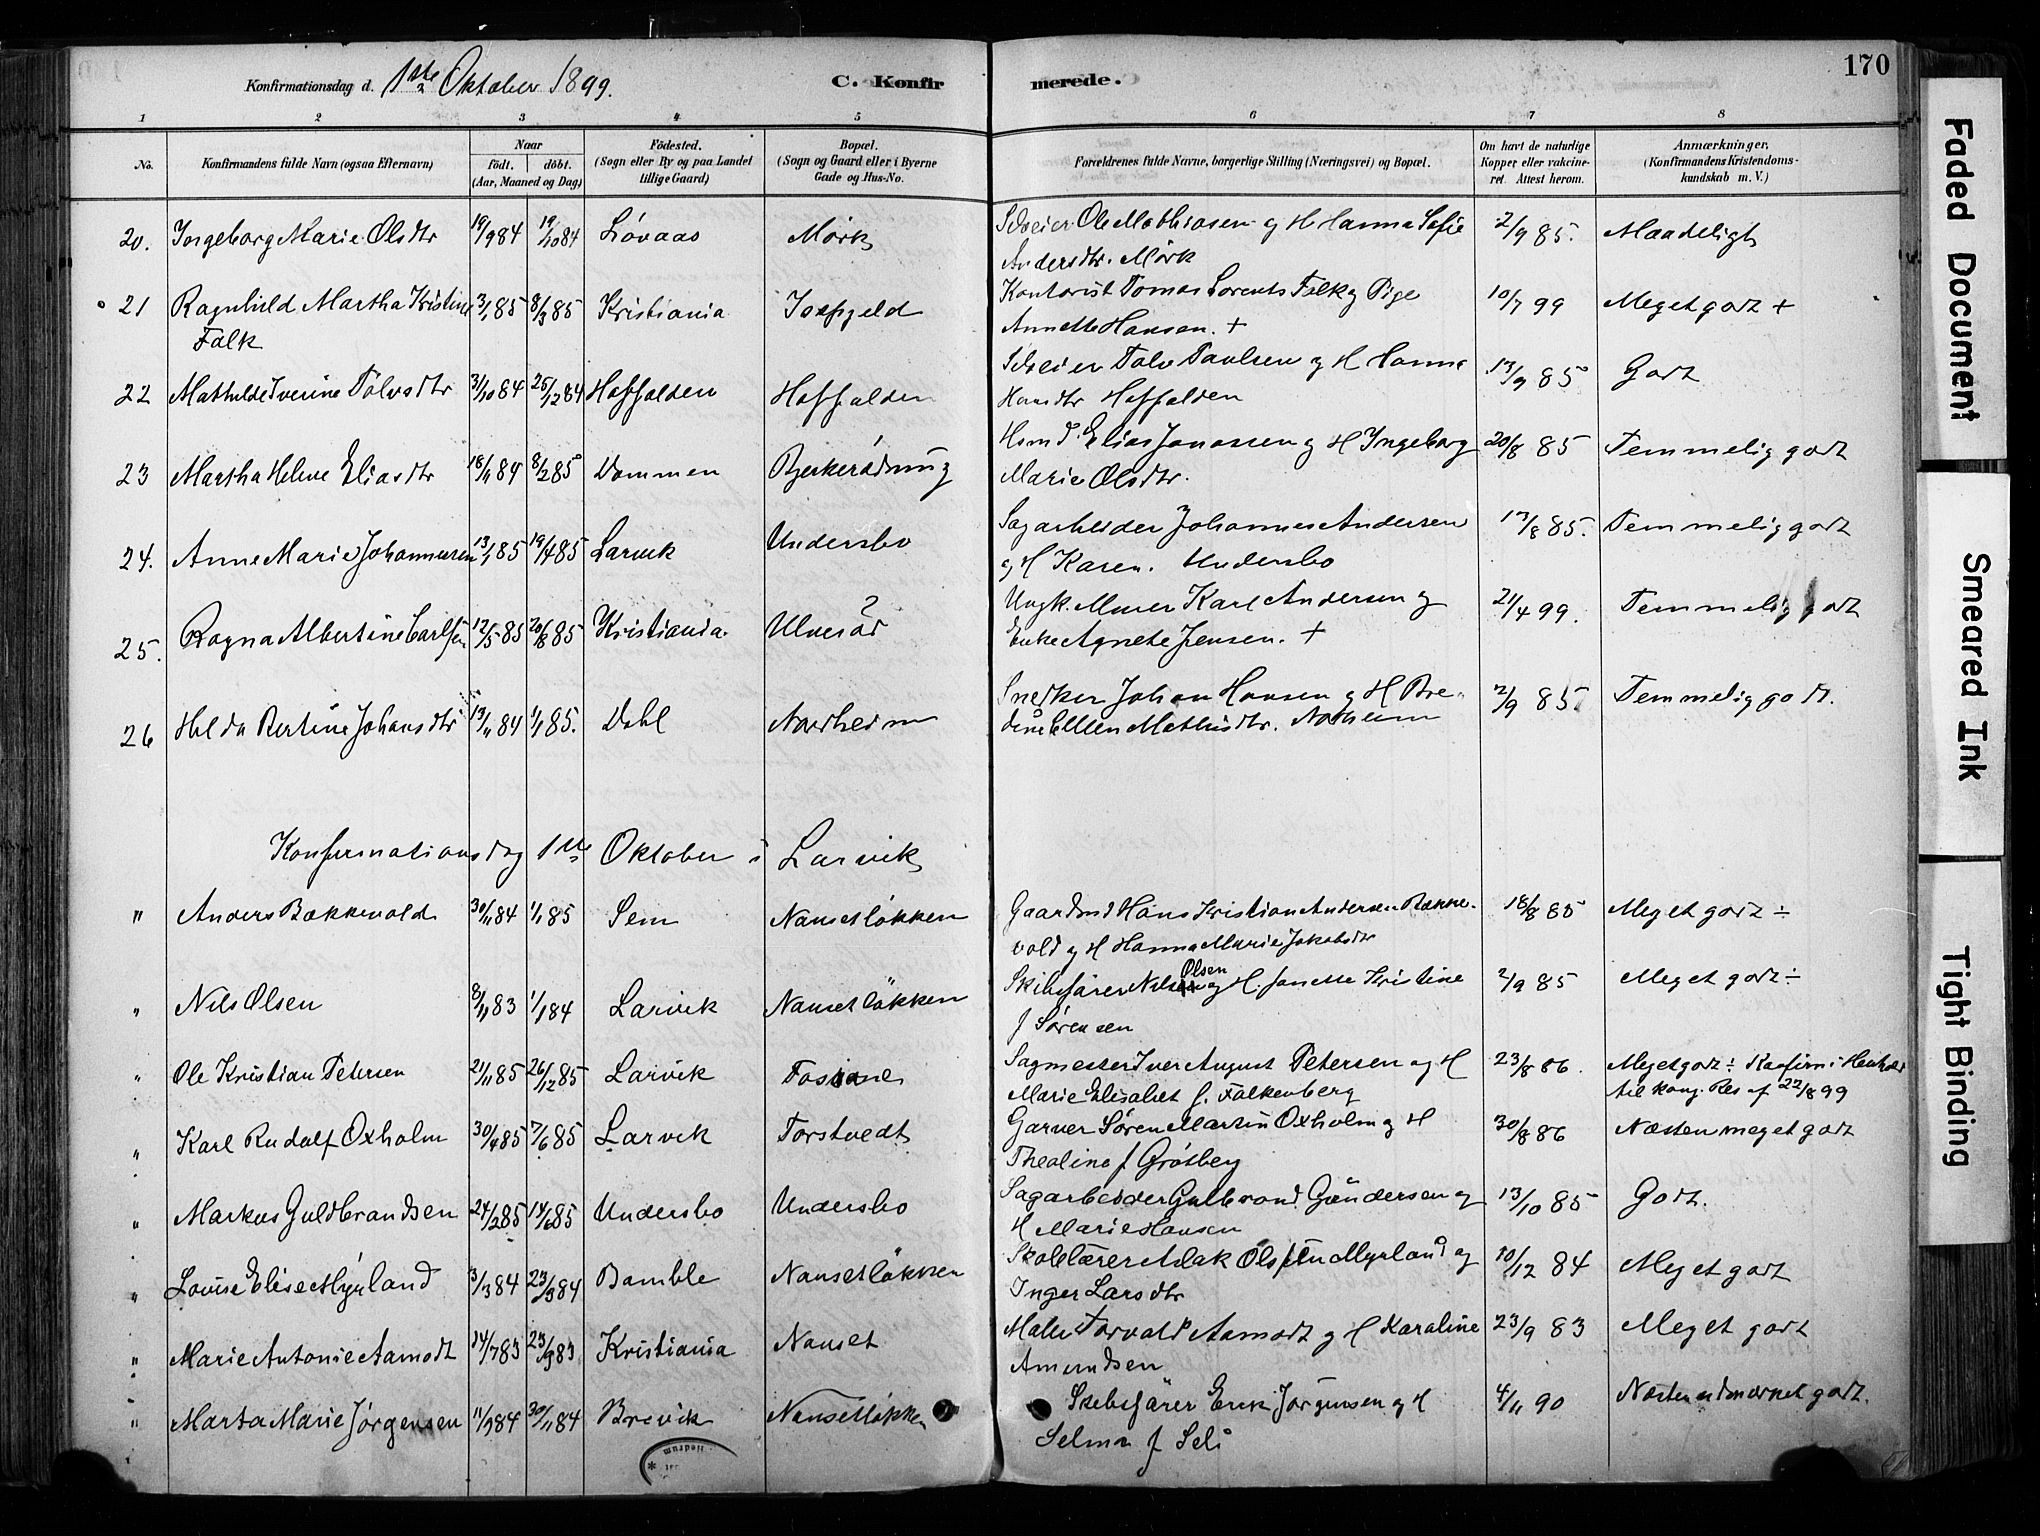 170
Konfirmationsdag d. 1ste Oktober 1899. C. Konfirmerede.
1 2 3 4 5 6 7 8
No. Konfirmandens fulde Navn (ogsaa Efternavn) Naar Födt. döbt. (Aar, Maaned og Dag) Födested. (Sogn eller By og paa Landet tillige Gaard) Bopæl. (Sogn og Gaard eller i Byerne Gade og Hus-No. Forældrenes fulde Navne, borgerlige Stilling (Næringsvei) og Bopæl. Om havt de naturlige Kopper eller vakcineret. Attest herom. Anmærkninger, (Konfirmandens Kristendomskundskab m. V.)
20. Ingeborg Marie Olsdtr 19/9 84 19/10 84 Lövaas Mörk Selveier Ole Mathiasen og H Hanna Sofie 2/9 85. Maadeligt
Andersdtr. Mörk
21 Ragnhild Martha Kristine 3/1 85 8/3 85 Kristiania Kontorist Tomas Lorents Falk og Pige 10/7 99 Meget godt +
Falk Annette Hansen. +
22 Mathilde Iverine Tolvsdtr 31/10 84 26/12 84 Hoffalden Hoffalden Selveier Tolv Paulsen og H Hanna 13/9 85 Godt
Hansdtr Hoffalden
23 Martha Helene Eliasdtr 18/11 84 8/2 85 Dammen Bjerkerödning Hsmd Elias Jonassen og H Ingeborg 20/8 85 Temmelig godt
Marie Olsdtr.
24. Anne Marie Johannesen 13/1 85 19/4 85 Larvik Undersbo Sagarbeider Johannes Andersen 17/8 85. Temmelig godt
og H Karen. Undersbo
25. Ragna Albertine Carlsen 12/5 85 20/8 85 Kristiania Ulveröd Ungk. Murer Karl Andersen og 21/4 99. Temmelig godt
Enke Agnete Jensen. +
26 Hilda Bertine Johansdtr 13/11 84 1/1 85. Dahl Nordheim Snedker Johan Hansen og H Bre- 2/9 85 Temmelig godt.
dine Ellen Mathisdtr. Norheim
Konfirmationsdag 1ste Oktober i Larvik
" Anders Bækkevold 30/11 84 1/1 85 Sem Nansetlökken Gaardmd Hans Kristian Andersen Bække- 18/8 85 Meget godt ÷
vold og H Hanna Marie Jakobsdtr
" Nils Olsen 8/11 83 1/1 84 Larvik Nansetlökken Skibsförer Nils Olsen og H. Janette Kristine 2/9 85 Meget godt ÷
f Sörensen
" Ole Kristian Petersen 21/11 85 26/12 85 Larvik Sagmester Iver August Petersen og H 23/8 86. Meget godt ÷ Konfirm i Henhold
Marie Elisabet f. Falkenberg til kong. Res af 22/8 99
" Karl Rudolf Oxholm 30/4 85 7/6 85 Larvik Torstvedt Garver Sören Martin Oxholm og H 30/8 86 Næsten meget godt
Thealine f Grötberg
" Markus Guldbrandsen 24/2 85 14/6 85 Undersbo Undersbo Sagarbeider Gulbrand Gundersen og 13/10 85 Godt.
H Marie Hansen
" Lovise Elise Myrland 3/3 84 23/3 84 Bamble Nansetlökken Skolelærer Aslak Olsen Myrland og 10/12 84 Meget godt
Inger Larsdtr
" Marie Antonie Aamodt 14/7 83 23/9 83 Kristiania Nanset Maler Torvald Aamodt og H Karoline 23/9 83 Meget godt
Amundsen
" Marta Marie Jörgensen 11/9 84 30/11 84 Brevik Nansetlökken Skibsförer Erik Jörgensen og H 4/11 90 Næsten udmærket godt.
Selma f Seli
Faded Document
Smeared Ink
Tight Binding